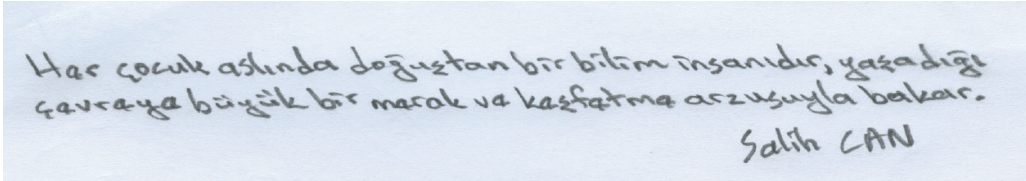 Her çocuk aslında doğuştan bir bilim insanıdır, yaşadığı
çevreye büyük bir merak ve keşfetme arzusuyla bakar.
Salih CAN